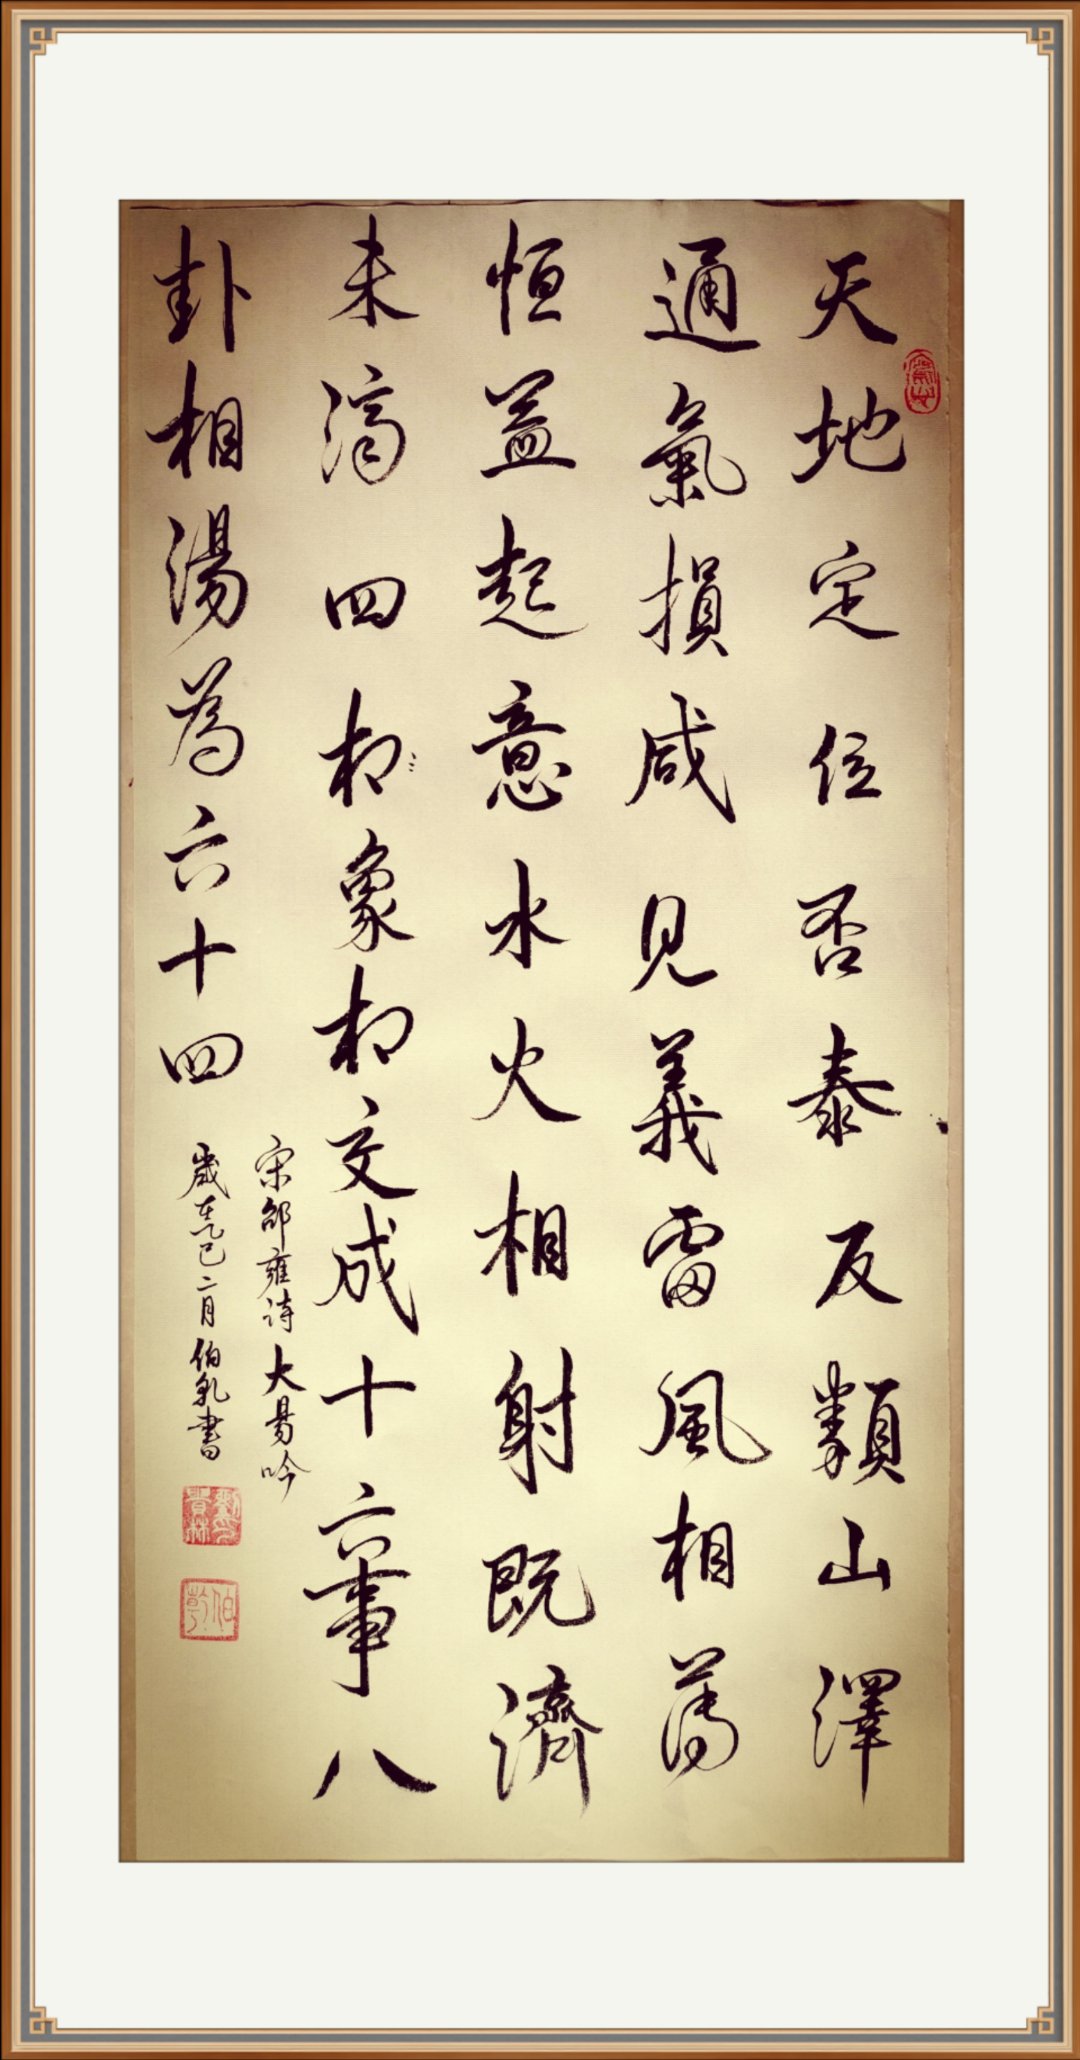 天地定位否泰反類山澤
通氣損咸見義雷風相薄
恒益起意水火相射既濟
未濟四相象相交成十六事八
卦相湯為六十四
宋邵雍诗大易吟
歲在乙巳二月伯乾書
伯乾